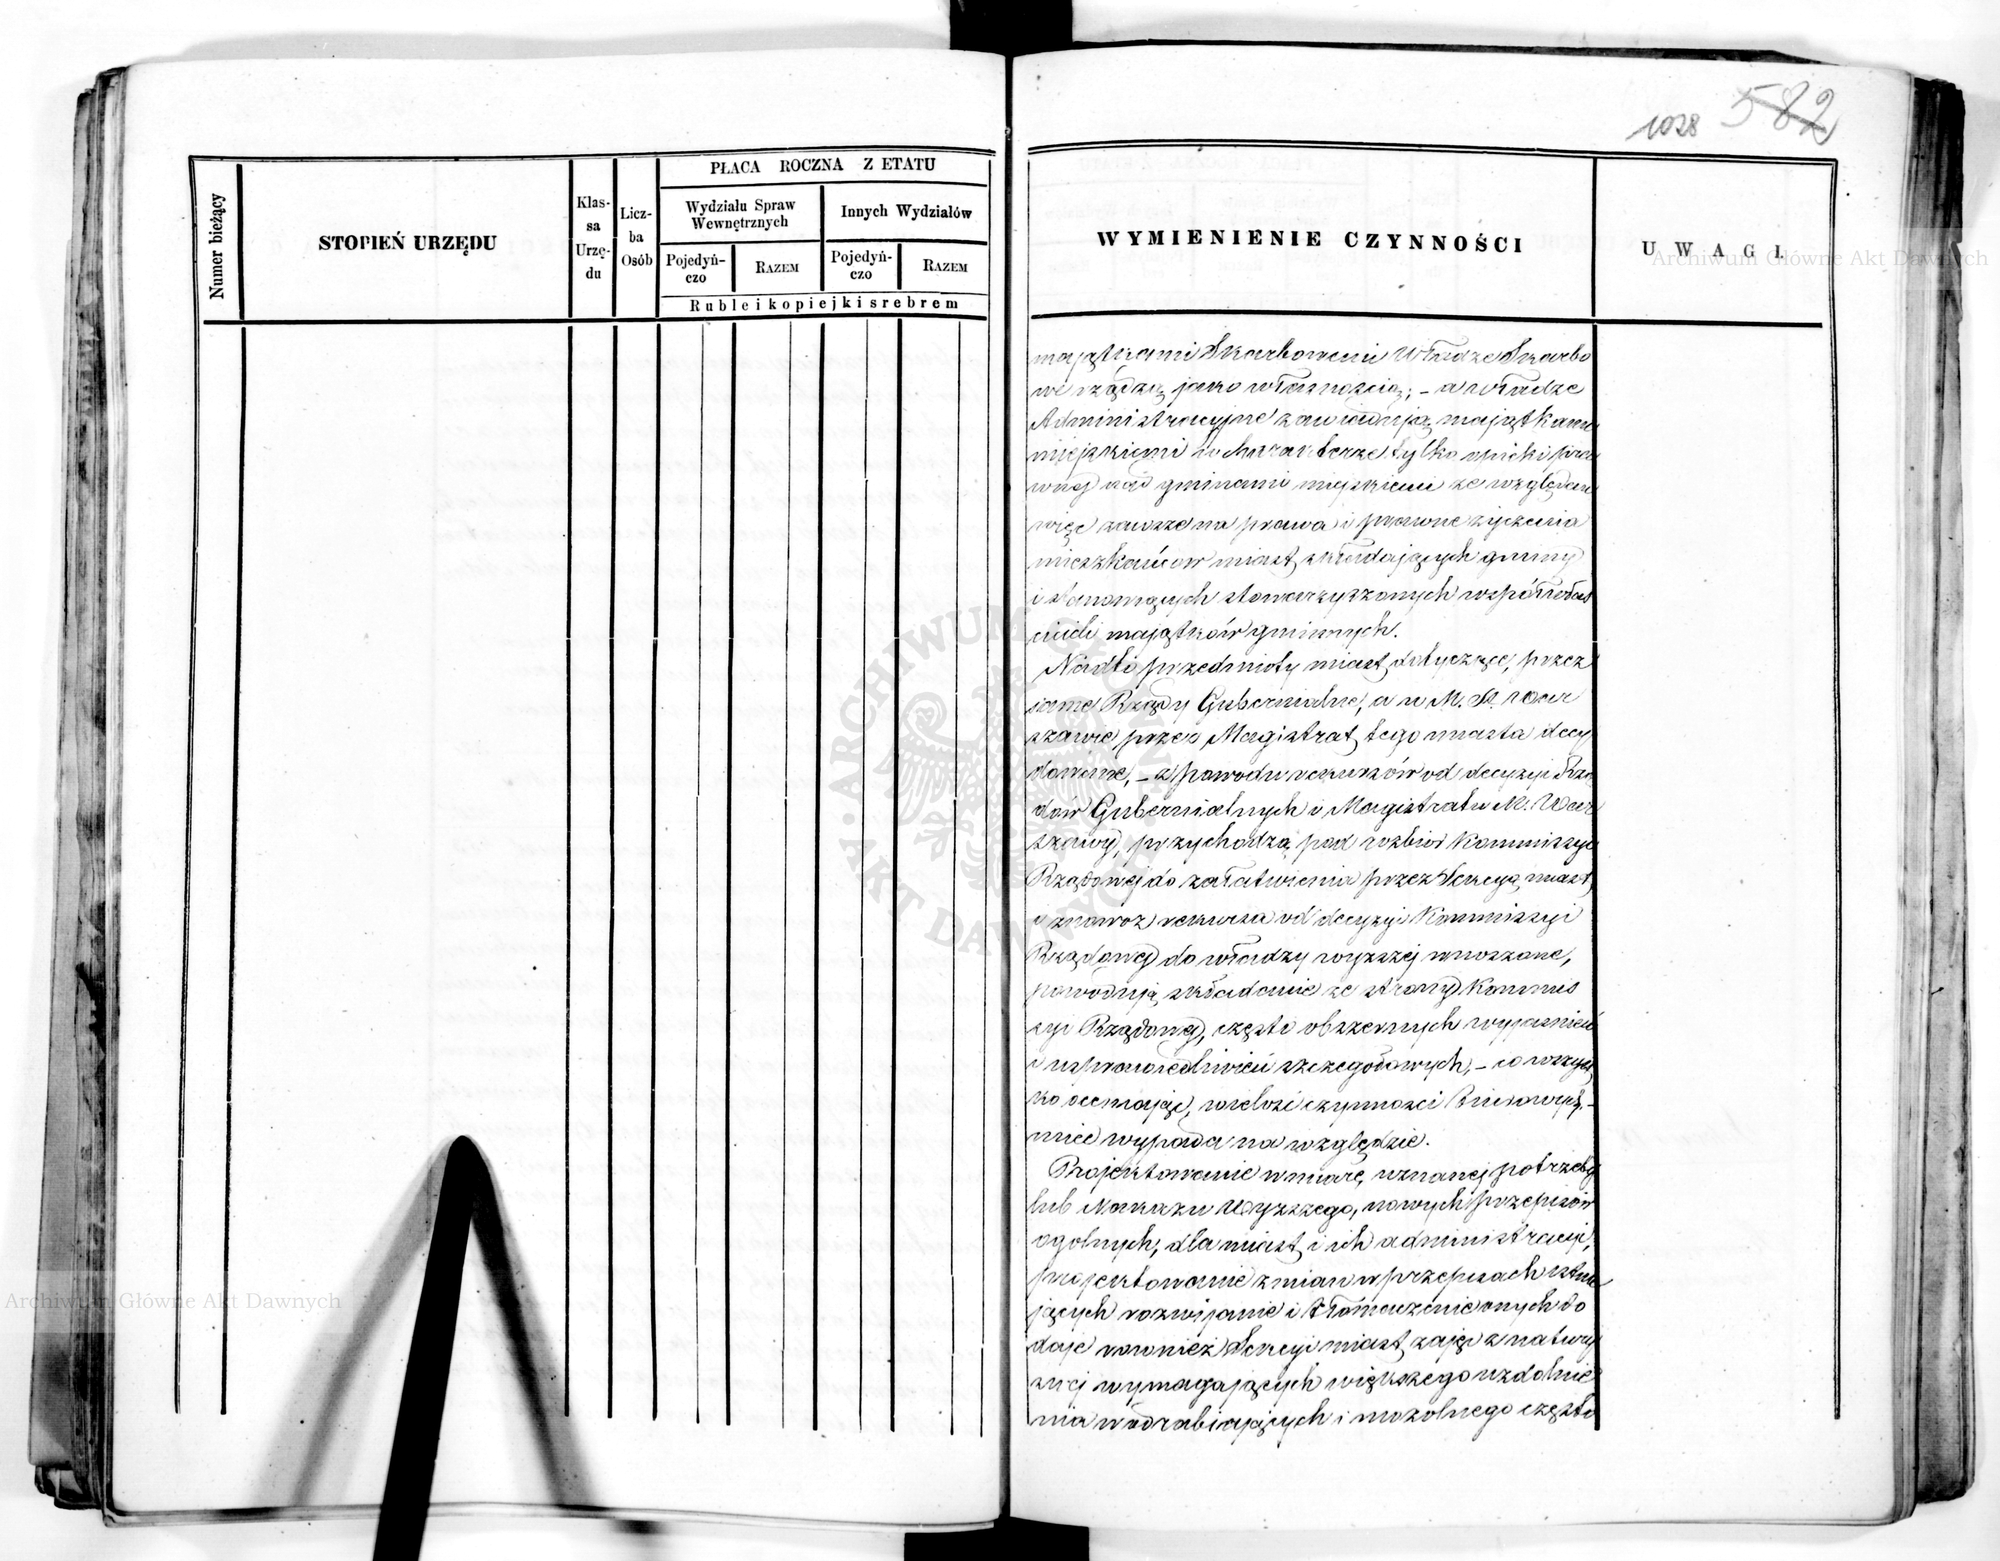 1028 582
PŁACA ROCZNA Z ETATU
Numer bieżący
STOPIEŃ URZĘDU
Klas-
sa
Urzę-
du
Licz-
ba
Osób
Wydziału Spraw
Wewnętrznych
Innych Wydziałów
Pojedyń-
czo
RAZEM
Pojedyń-
czo
RAZEM
Rublei kopiejki srebrem
WYMIENIENIE CZYNNOŚCI
UWAGI
majątkami Skarbowemi Władze Skarbo
we rządzą jako własnością; – a władze
Administracyjne zawiadują majątkami
miejskiemi w charakterze tylko opieki pra
wnej nad gminami miejskiemi ze względem
więc zawsze na prawa i prawne życzenia
mieszkańców miast składających gminy
i stanowiących stowarzyszonych współwłaś
cicieli majątków gminnych.
Nadto przedmioty miast dotyczące, przez
same Rządy Gubernialne, a w M. St. War
szawie przez Magistrat tego miasta decy
dowane, – z powodu rekursów od decyzyi Rzą
dów Gubernialnych i Magistratu M. War
szawy, przychodzą pod rozbiór Kommissyi
Rządowej do załatwienia przez Sekcyą miast,
i znowóż rekursa od decyzyi Kommissyi
Rządowej do władzy wyższej wnoszone,
powodują składanie ze strony Kommis
syi Rządowej, często obszernych wyjaśnień
i usprawiedliwień szczegółowych, – co wszyst
ko oceniając, wielość czynności Biurowych, –
mieć wypada na względzie.
Projektowanie w miarę uznanej potrzeby
lub Nakazu Wyższego, nowych przepisów
ogólnych, dla miast i ich administracyi,
projektowanie zmian w przepisach istnie
jących rozwijanie i tłomaczenie onych do
daje również Sekcyi miast zajęć z natury
swej wymagających większego uzdolnie
nia w odrabiających i mozolnego często
ARCHIWUM GŁÓWNE AKT DAWNYCH
Archiwum Główne Akt Dawnych
Archiwum Główne Akt Dawnych